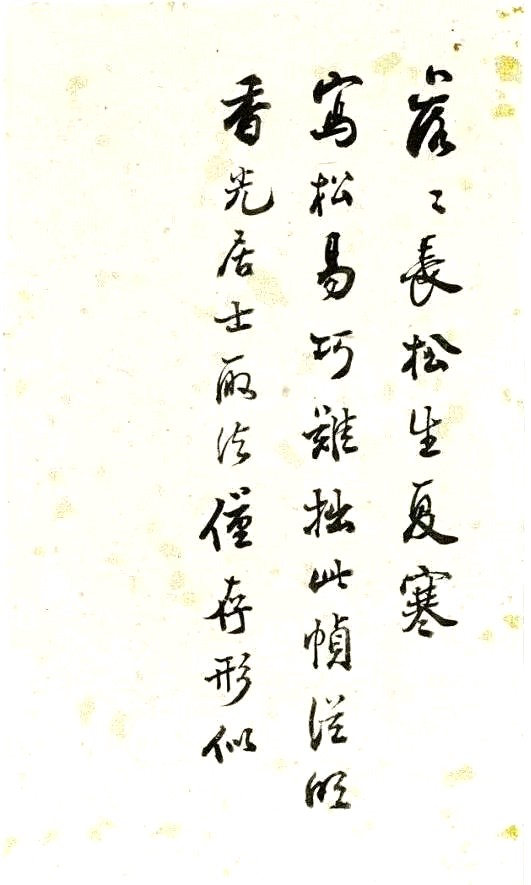 落〻長松生夏寒
寫松易巧難拙此幀從明
香光居士取法僅存形似